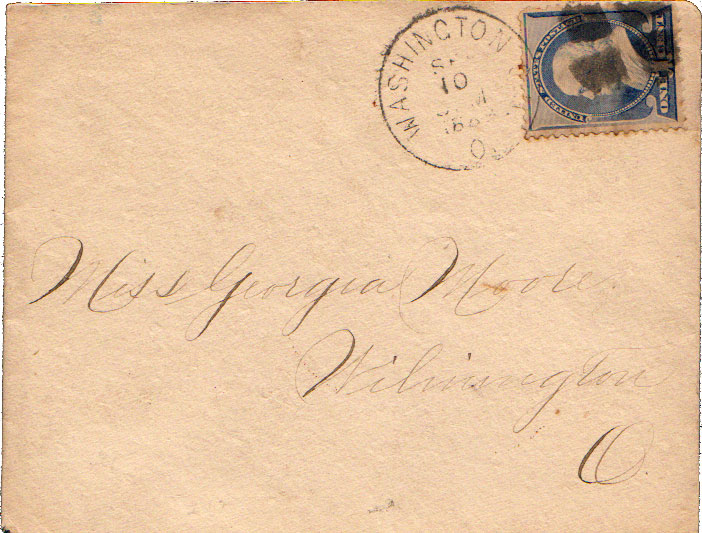 WASHINGTON
10
O.
UNITED STATES POSTAGE
2
Miss Georgia Moore
Wilmington
O.